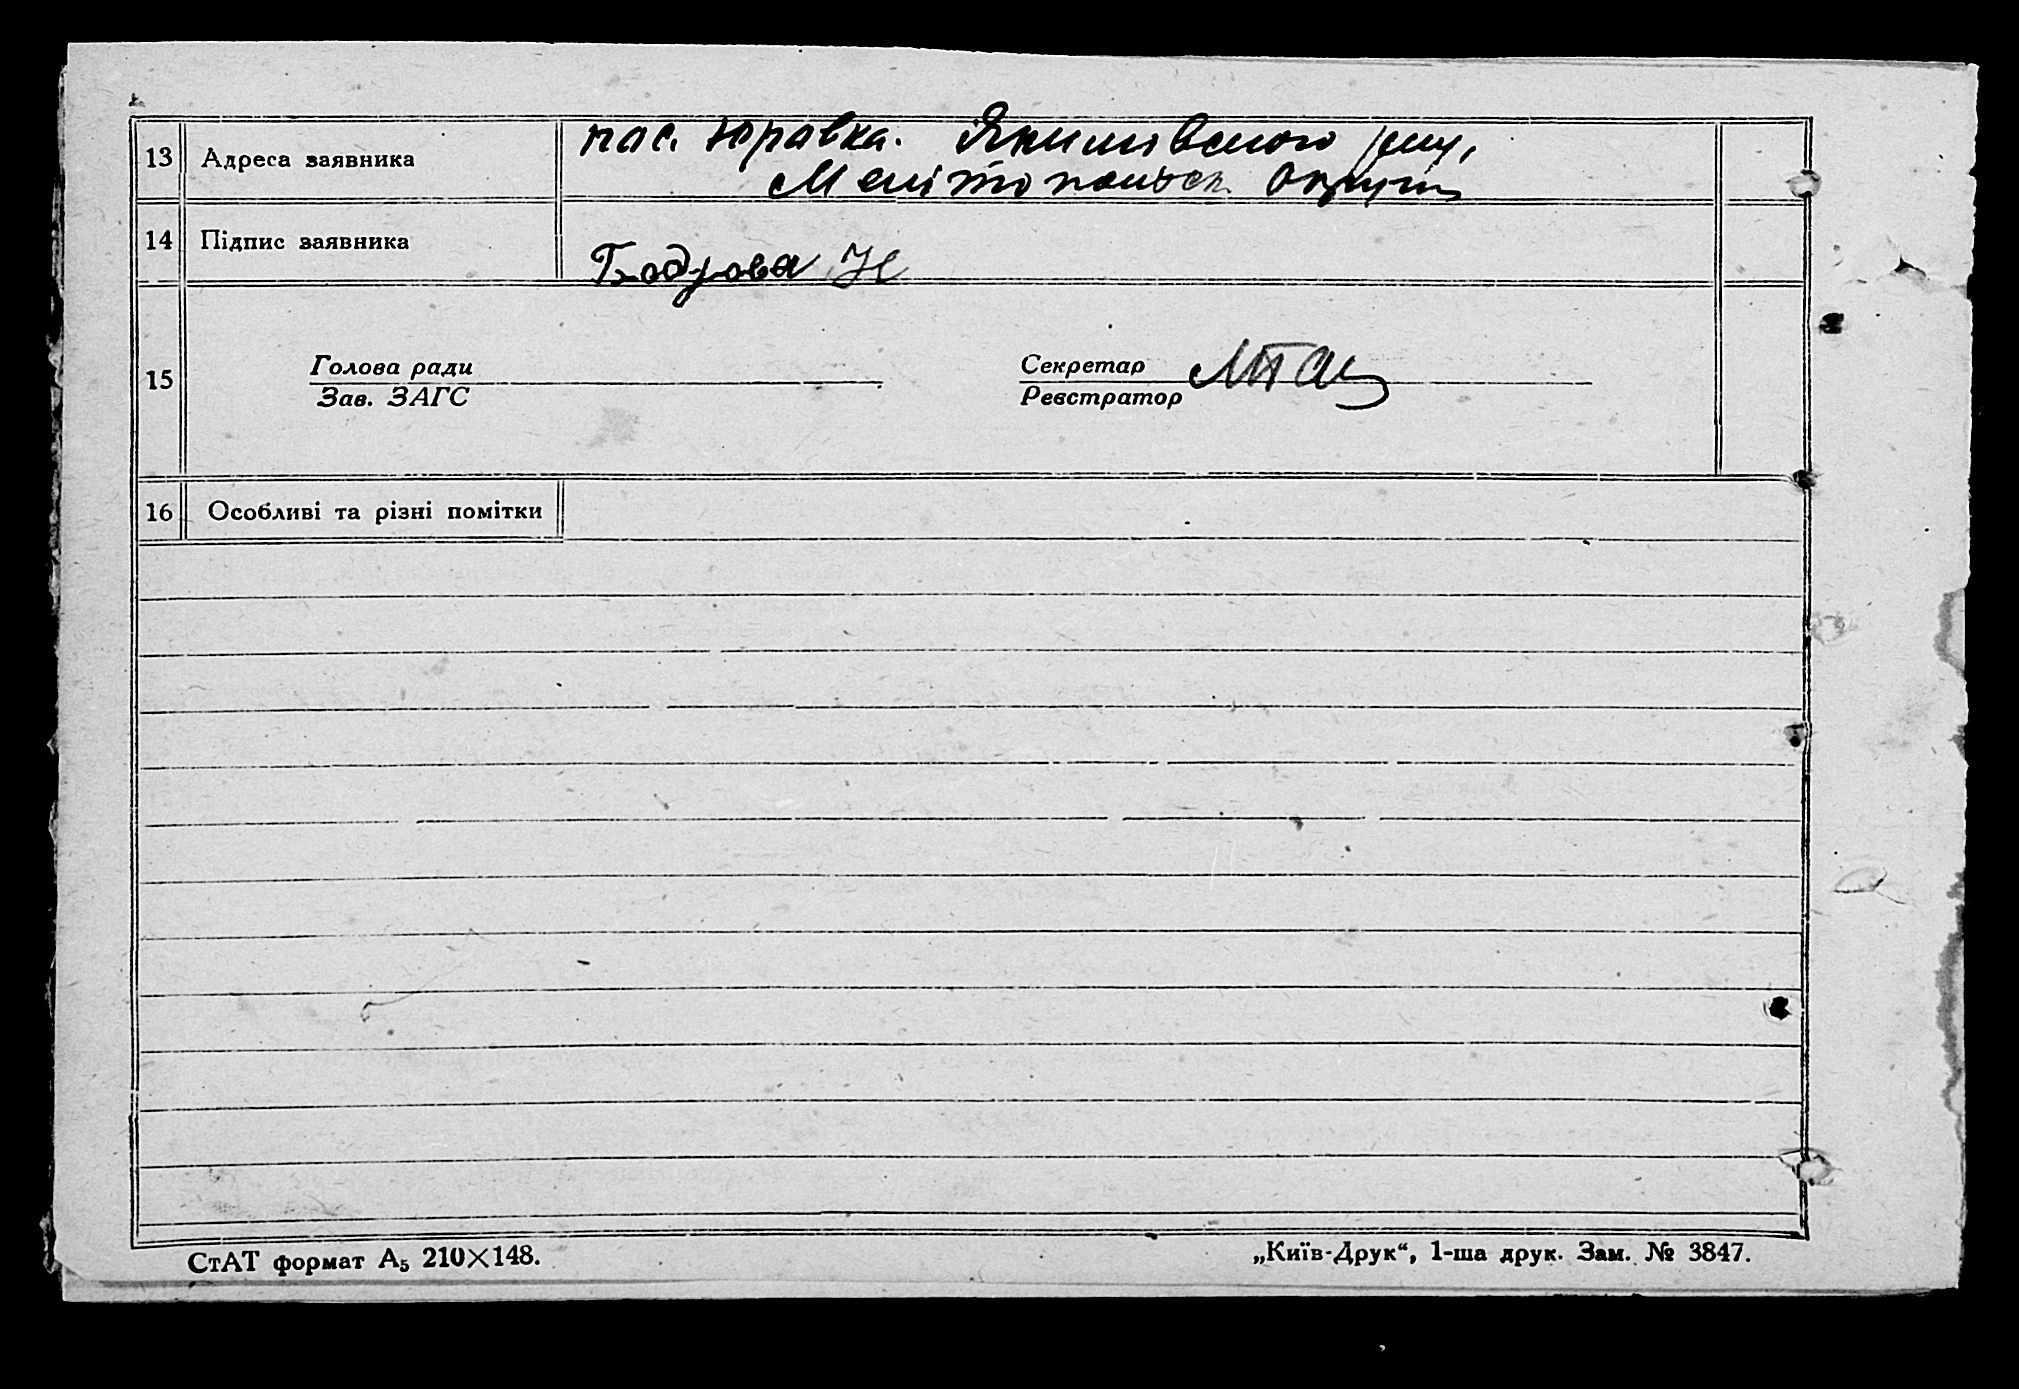 13 Адреса заявника пос. Юравка. Якимівського рну,
Мелітопольск. Округи
14 Підпис заявника Бодрова Н
15 Голова ради Секретар
Зав. ЗАГС Реєстратор
16 Особливі та різні помітки
СтАТ формат А5 210×148. „Київ-Друк“, 1-ша друк. Зам. № 3847.